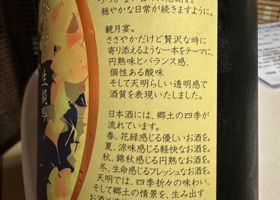 穏やかな日常が続きますように。
観月宴。
ささやかだけど贅沢な時に
寄り添えるような一本をテーマに、
円熟味とバランス感、
個性ある酸味
そして天明らしい透明感で
酒質を表現いたしました。
日本酒には、郷土の四季が
流れています。
春、花緑感じる優しいお酒を。
夏、涼味感じる軽快なお酒を。
秋、錦秋感じる円熟なお酒を。
冬、生命感じるフレッシュなお酒を。
天明では、四季折々の味わい、
そして郷土の情景を、生み出す